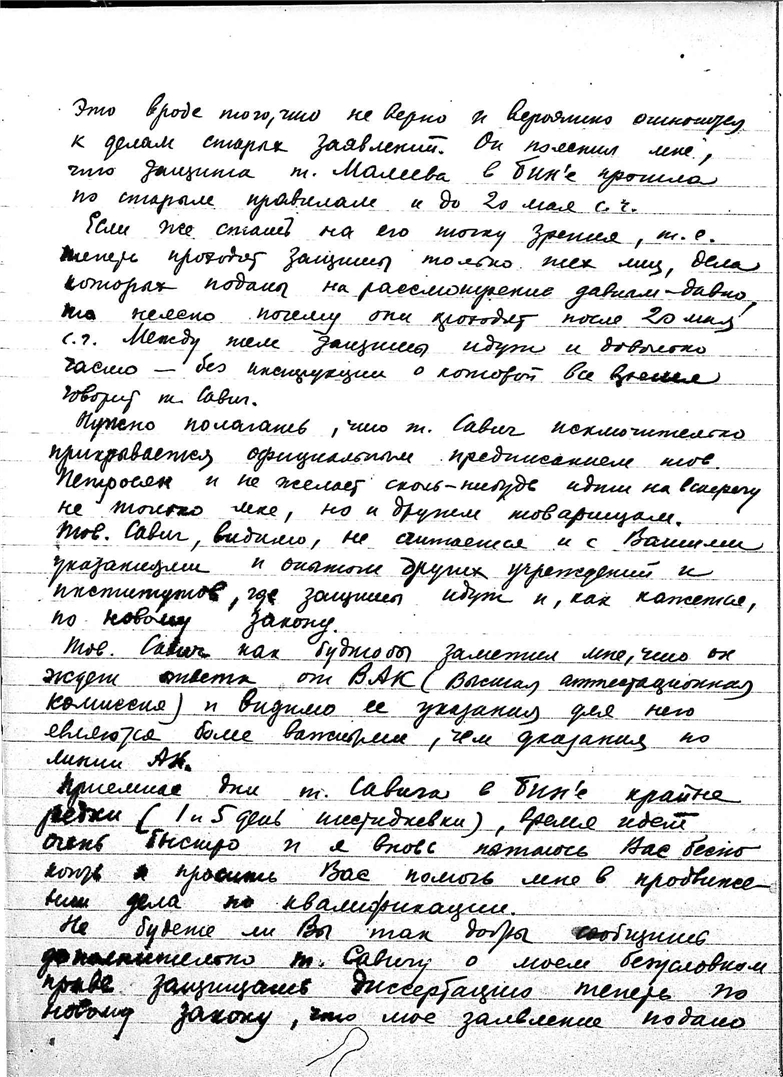 Это вроде того, что не верно и вероятно относится
к делам старых заявлений. Он пояснил мне,
что защита т. Малеева в БИН'е прошла
по старым правилам и до 20 мая с.г.
Если же стать на его точку зрения, т.е.
теперь проходят защиты только тех лиц, дела
которых поданы на рассмотрение давным-давно,
то неясно почему они проходят после 20 мая
с.г. Между тем защиты идут и довольно
часто — без инструкции о которой все время
говорит т. Савич.
Нужно полагать, что т. Савич исключительно
прикрывается официальным предписанием тов.
Петросян и не желает сколь-нибудь идти на встречу
не только мне, но и другим товарищам.
Тов. Савич, видимо, не считается и с Вашими
указаниями и опытом других учреждений и
институтов, где защиты идут и, как кажется,
по новому закону.
Тов. Савич как будтобы заметил мне, что он
ждет ответа от ВАК (Высшая аттестационная
комиссия) и видимо ее указания для него
являются более важными, чем указания по
линии АН.
Приемные дни т. Савича в БИН'е крайне
редки (1 и 5 день шестидневки), время идет
очень быстро и я вновь пытаюсь Вас беспо
коить и просить Вас помочь мне в продвиже-
нии дела по квалификации.
Не будете ли Вы так добры сообщить
дополнительно т. Савичу о моем безусловном
праве защищать диссертацию теперь по
новому закону, что мое заявление подано